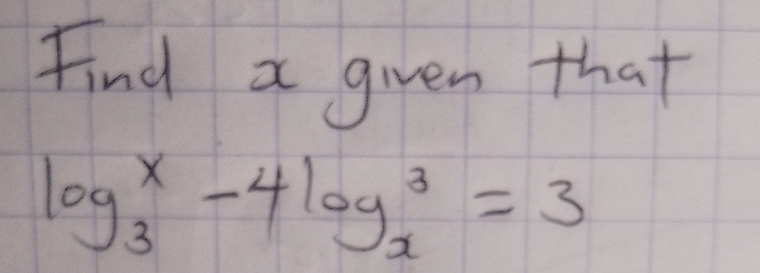 Find x given that
log₃ˣ - 4 logₓ³ = 3